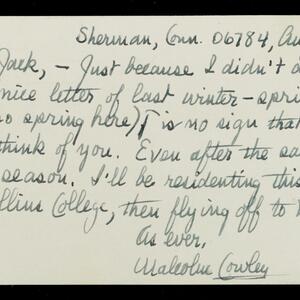 Sherman, Conn. 06784, Au
Jack, – Just because I didn't a
nice letter of last winter–spri
no spring here) is no sign that
think of you. Even after the sa
season. I'll be residenting this
llins College, then flying off to
As ever,
Malcolm Cowley